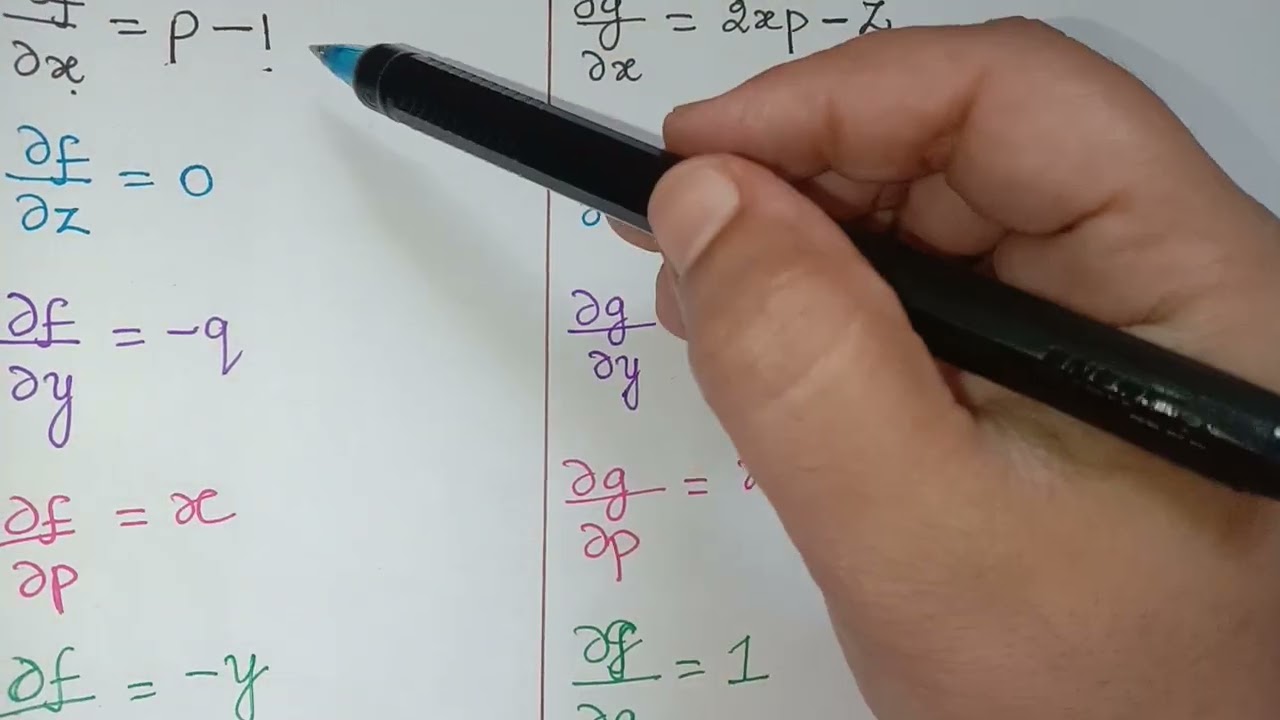 ∂f/∂x = p - 1
∂f/∂z = 0
∂f/∂y = -q
∂f/∂p = x
∂f = -y
∂g/∂x = 2xp - z
∂
∂g/∂y
∂g/∂p =
∂g/∂ = 1